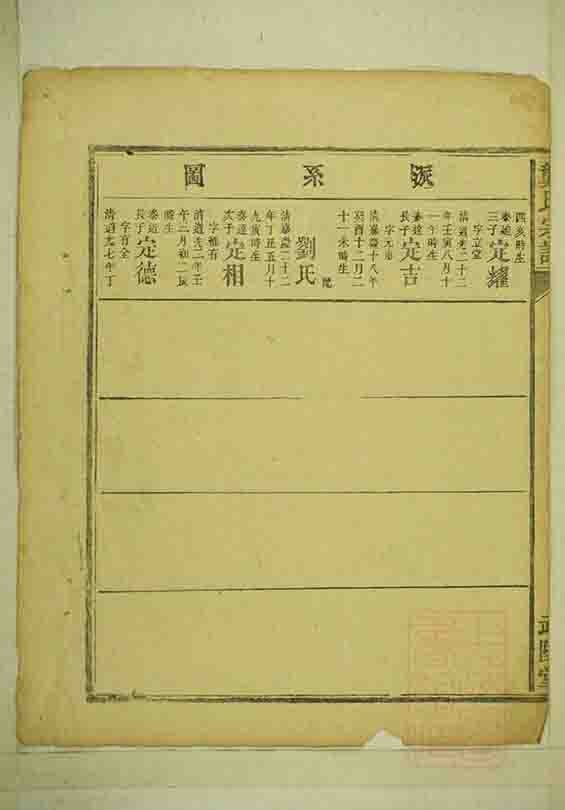 氏宗譜
派系圖
四亥時生
三子
定耀
字立堂
清道光二十二
年壬寅八月十
一午時生
泰達
長子
定吉
字元
清嘉慶十八年
癸酉十二月二
十一未時生
配
劉氏
清嘉慶二十二
年丁丑五月十
九寅時生
泰達
次子
定相
字輔有
清道光二年壬
午二月初二辰
時生
泰道
長子
定德
字百全
清道光七年丁